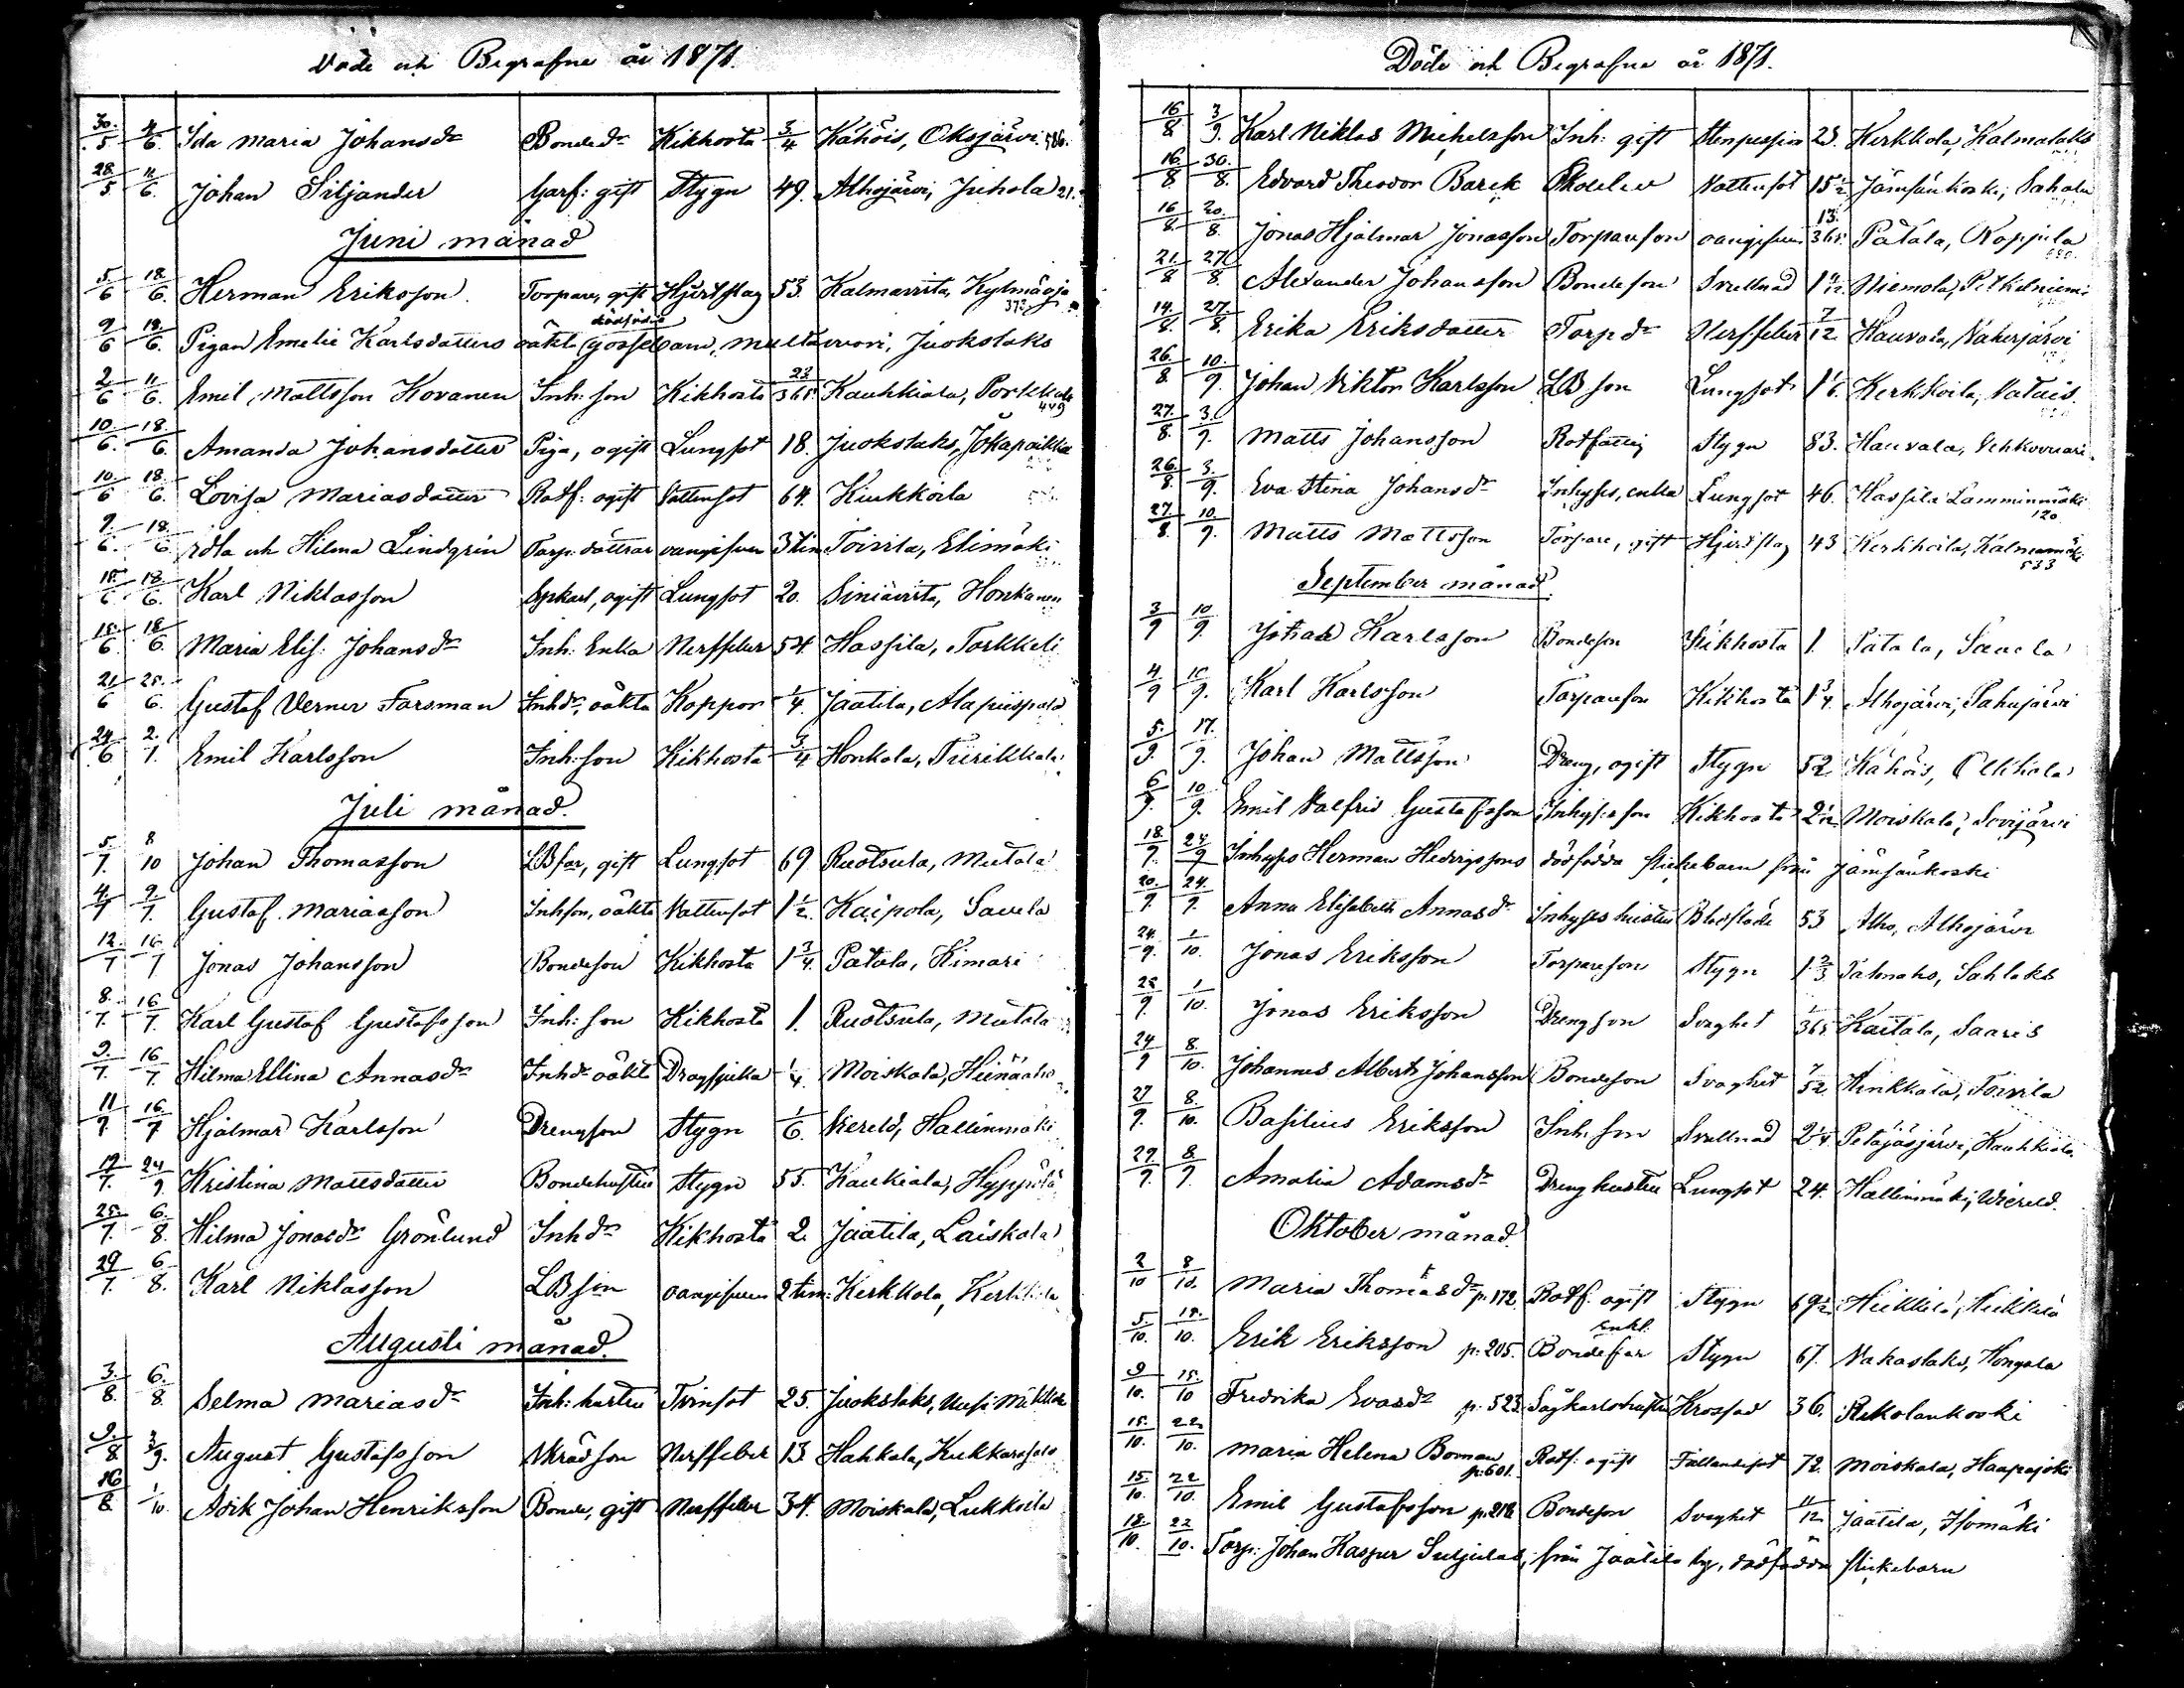 Döde och Begrafne år 1871.
30/5 4/6 Ida Maria Johansdr Bondedr Kikhosta 3/4 Kähöis, Oksjärvi
28/5 11/6 Johan Siljander gift Stygn 49. Alhojärvi, Juhola 21.
Juni månad
5/6 18/6 Herman Eriksson Torpare, gift Hjertslag 53. Kalmavirta, Kylmäoja
373
dödfödda
9/6 18/6 Pigan Emelie Karlsdotters oäkta gossebarn, Juokslaks
2/6 11/6 Emil Mattsson Kovanen Inh: son Kikhosta 23/365 Kauhkiala, Porkkala
449
10/6 18/6 Amanda Johansdotter Piga, ogift Lungsot 18. Juokslaks, Jokapaikka
10/6 18/6 Lovisa Mariasdotter Rotf: ogift Vattensot 64. Kiukkoila
9/6 18/6 Ida och Hilma Lindgrén Torp: döttrar oangifven 3 tim Toivila, Elimäki
15/6 18/6 Karl Niklasson ogift Lungsot 20. Siniävirta, Honkanen
15/6 18/6 Maria Elis: Johansdr Inh: Enka Nerffeber 54. Hassila, Torkkeli
21/6 25/6 Gustaf Verner Forsman Inhdr, oäkta Koppor 1/4 Jaatila, Alapiispala
24/6 2/7 Emil Karlsson Inh: son Kikhosta 3/4 Honkola, Tiirikkala
Juli månad.
5/7 8/10 Johan Thomasson LBfar, gift Lungsot 69 Ruotsula, Mutala
4/7 9/7 Gustaf Mariasson Inhson, oäkta Vattensot 1 1/2 Kaipola, Savela
12/7 16/7 Jonas Johansson Bondeson Kikhosta 1 3/4 Patala, Kimari
8/7 16/7 Karl Gustaf Gustafsson Inh: son Kikhosta 1. Ruotsula, Mutala
9/7 16/7 Hilma Ellina Annasdr Inhdr oäkta Dragsjuka 1/4 Moiskala, Heinäaho
11/7 16/7 Hjalmar Karlsson Drengson Stygn 1/6 Viereld, Hallinmäki
19/7 24/9 Kristina Mattsdotter Bondehustru Stygn 55. Kaukiala, Hyppölä
25/7 6/8 Hilma Jonasdr Grönlund Inhdr Kikhosta 2. Jaatila, Laiskala
29/7 6/8 Karl Niklasson LBson oangifven 2 tim: Kerkkola, Kerkkola
Augusti månad.
3/8 6/8 Selma Mariasdr Inh: hustru Tvinsot 25. Juokslaks,
9/8 3/9 August Gustafsson Skrädson Nerffeber 13 Hahkala, Kukkarsalo
16/8 1/10 Johan Henriksson Bonde, gift Nerffeber 34. Moiskala, Lukkoila
Döde och Begrafne år 1871.
16/8 3/9 Karl Niklas Michelsson Inh: gift 23. Kerkkola, Kalmalaks
16/8 30/8 Edvard Theodor Barck Vattensot 15 1/2 Jämsänkoski, Sahala
16/8 20/8 Jonas Hjalmar Jonasson Torpareson oangifven 13/365 Patala, Koppila
21/8 27/8 Alexander Johansson Bondeson Svullnad Niemola, Pitkäniemi
14/8 27/8 Erika Eriksdotter Torpdr Nerffeber 7/12 Hauvala, Vaherjärvi
26/8 10/9 Johan Viktor Karlsson LBson Lungsot 1 1/6 Kerkkola, Vatais
27/8 3/9 Matts Johansson Rotfattig Stygn 83. Hauvala, Vehkovuari
26/8 3/9 Eva Stina Johansdr Inhyses, enka Lungsot 46. Hassila Lamminmäki
120
27/8 10/9 Matts Mattsson Torpare, gift Hjertslag 43 Kerkkola, Kalmamäki
533
September månad.
3/9 10/9 Johan Karlsson Bondeson Kikhosta 1. Patala, Savela
4/9 10/9 Karl Karlsson Torpareson Kikhosta 1 3/4 Alhojärvi, Pahajärvi
5/9 17/9 Johan Mattsson Dreng, ogift Stygn 52. Kähöis, Ollikala
6/9 10/9 Emil Valfrid Gustafsson Inhyses son Kikhosta 2 1/2 Moiskala, Sovijärvi
18/9 24/9 Inhyses Herman Hedvigssons dödfödda flickebarn från Jämsänkoski
20/9 24/9 Anna Elisabeth Annasdr Inhyses hustru 53 Alho, Alhojärvi
24/9 1/10 Jonas Eriksson Torpareson Stygn 1 2/3 Palmaho, Sahlaks
28/9 1/10 Jonas Eriksson Drengson Svaghet 1/365 Kaitala, Saaris
24/9 8/10 Johannes Albert Johansson Bondeson Svaghet 7/52 Hinkkala, Toivila
27/9 8/10 Basilius Eriksson Inh: son Svullnad 2 1/4 Petäjäsjärvi, Kauhkiala
29/9 8/9 Amalia Adamsdr Dreng hustru Lungsot 24. Hallinmäki, Wiereld.
Oktober månad.
2/10 8/10 Maria Thomasdr p. 172 Rotf. ogift Stygn 69 1/2 Heikkilä, Heikkilä
enkl.
5/10 15/10 Erik Eriksson p. 205. Bondefar Stygn 67. Vakaslaks, Hongola
9/10 15/10 Fredrika Evasdr p. 523 Sågkarlshustru Krossad 36. Rekolankoski
15/10 22/10 Maria Helena Boman p. 601. Rotf: ogift Fallandesot 72. Moiskala, Haapajoki
15/10 22/10 Emil Gustafsson p. 218 Bondeson Svaghet 11/12 Jaatila, Isomäki
18/10 22/10 Torp: Johan Kasper Suljulas, från Jaatila by, dödfödda flickebarn